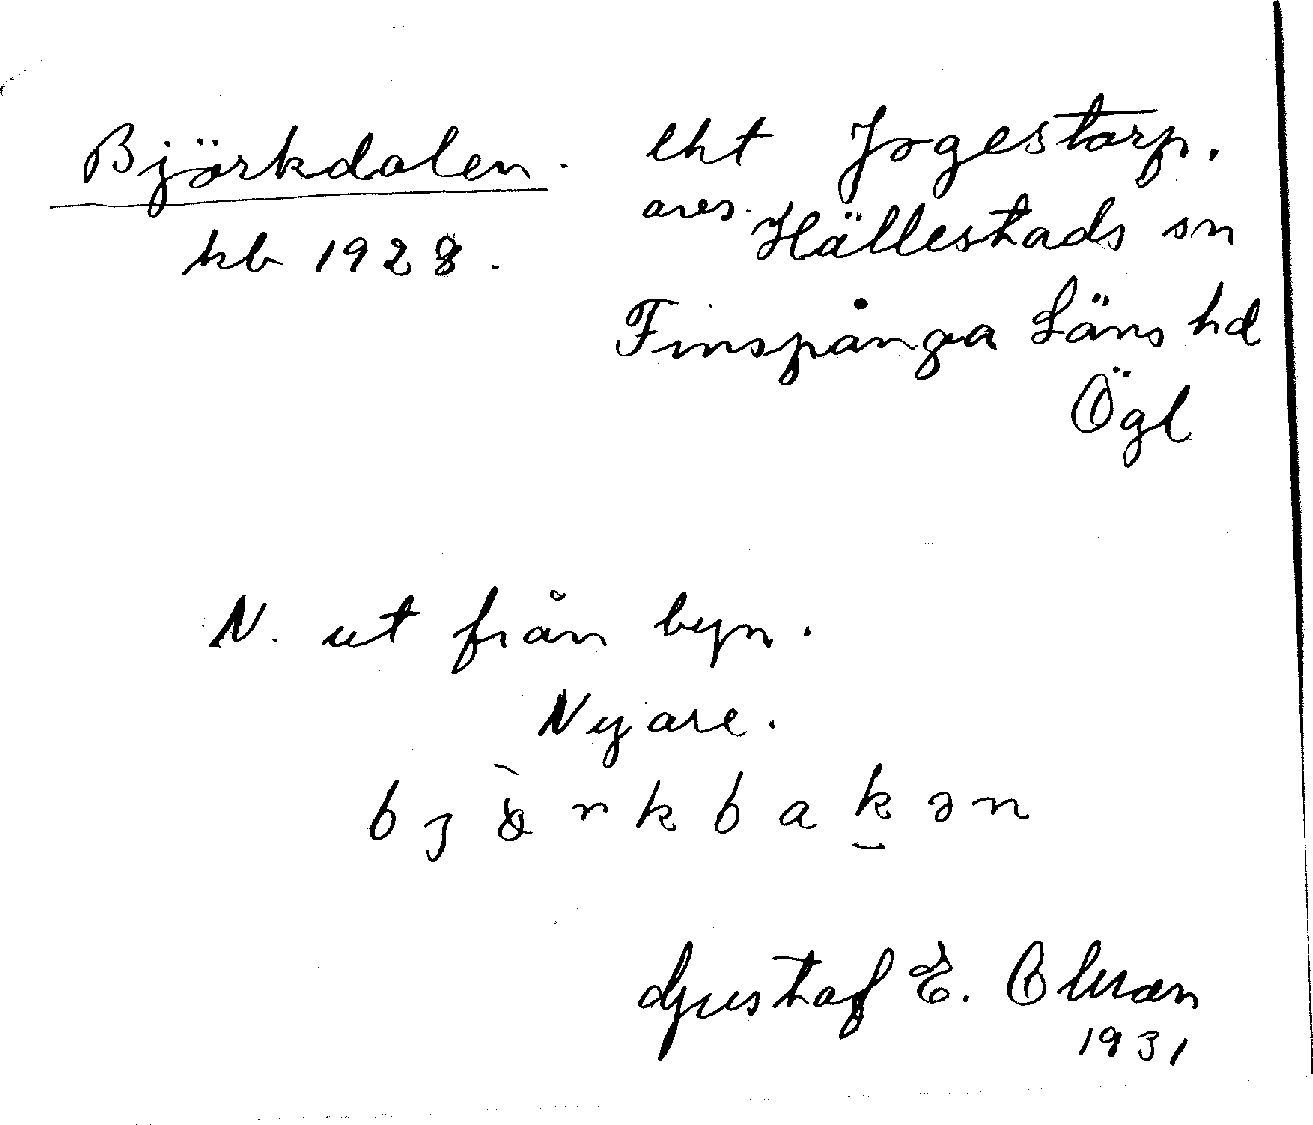 Björkdalen. lht Jogestorp.
kb 1928. aves. Hällestads sn
Finspånga Läns hd
Ögl
N. ut från byn.
Nyare.
Gustaf E. Olsson
1931